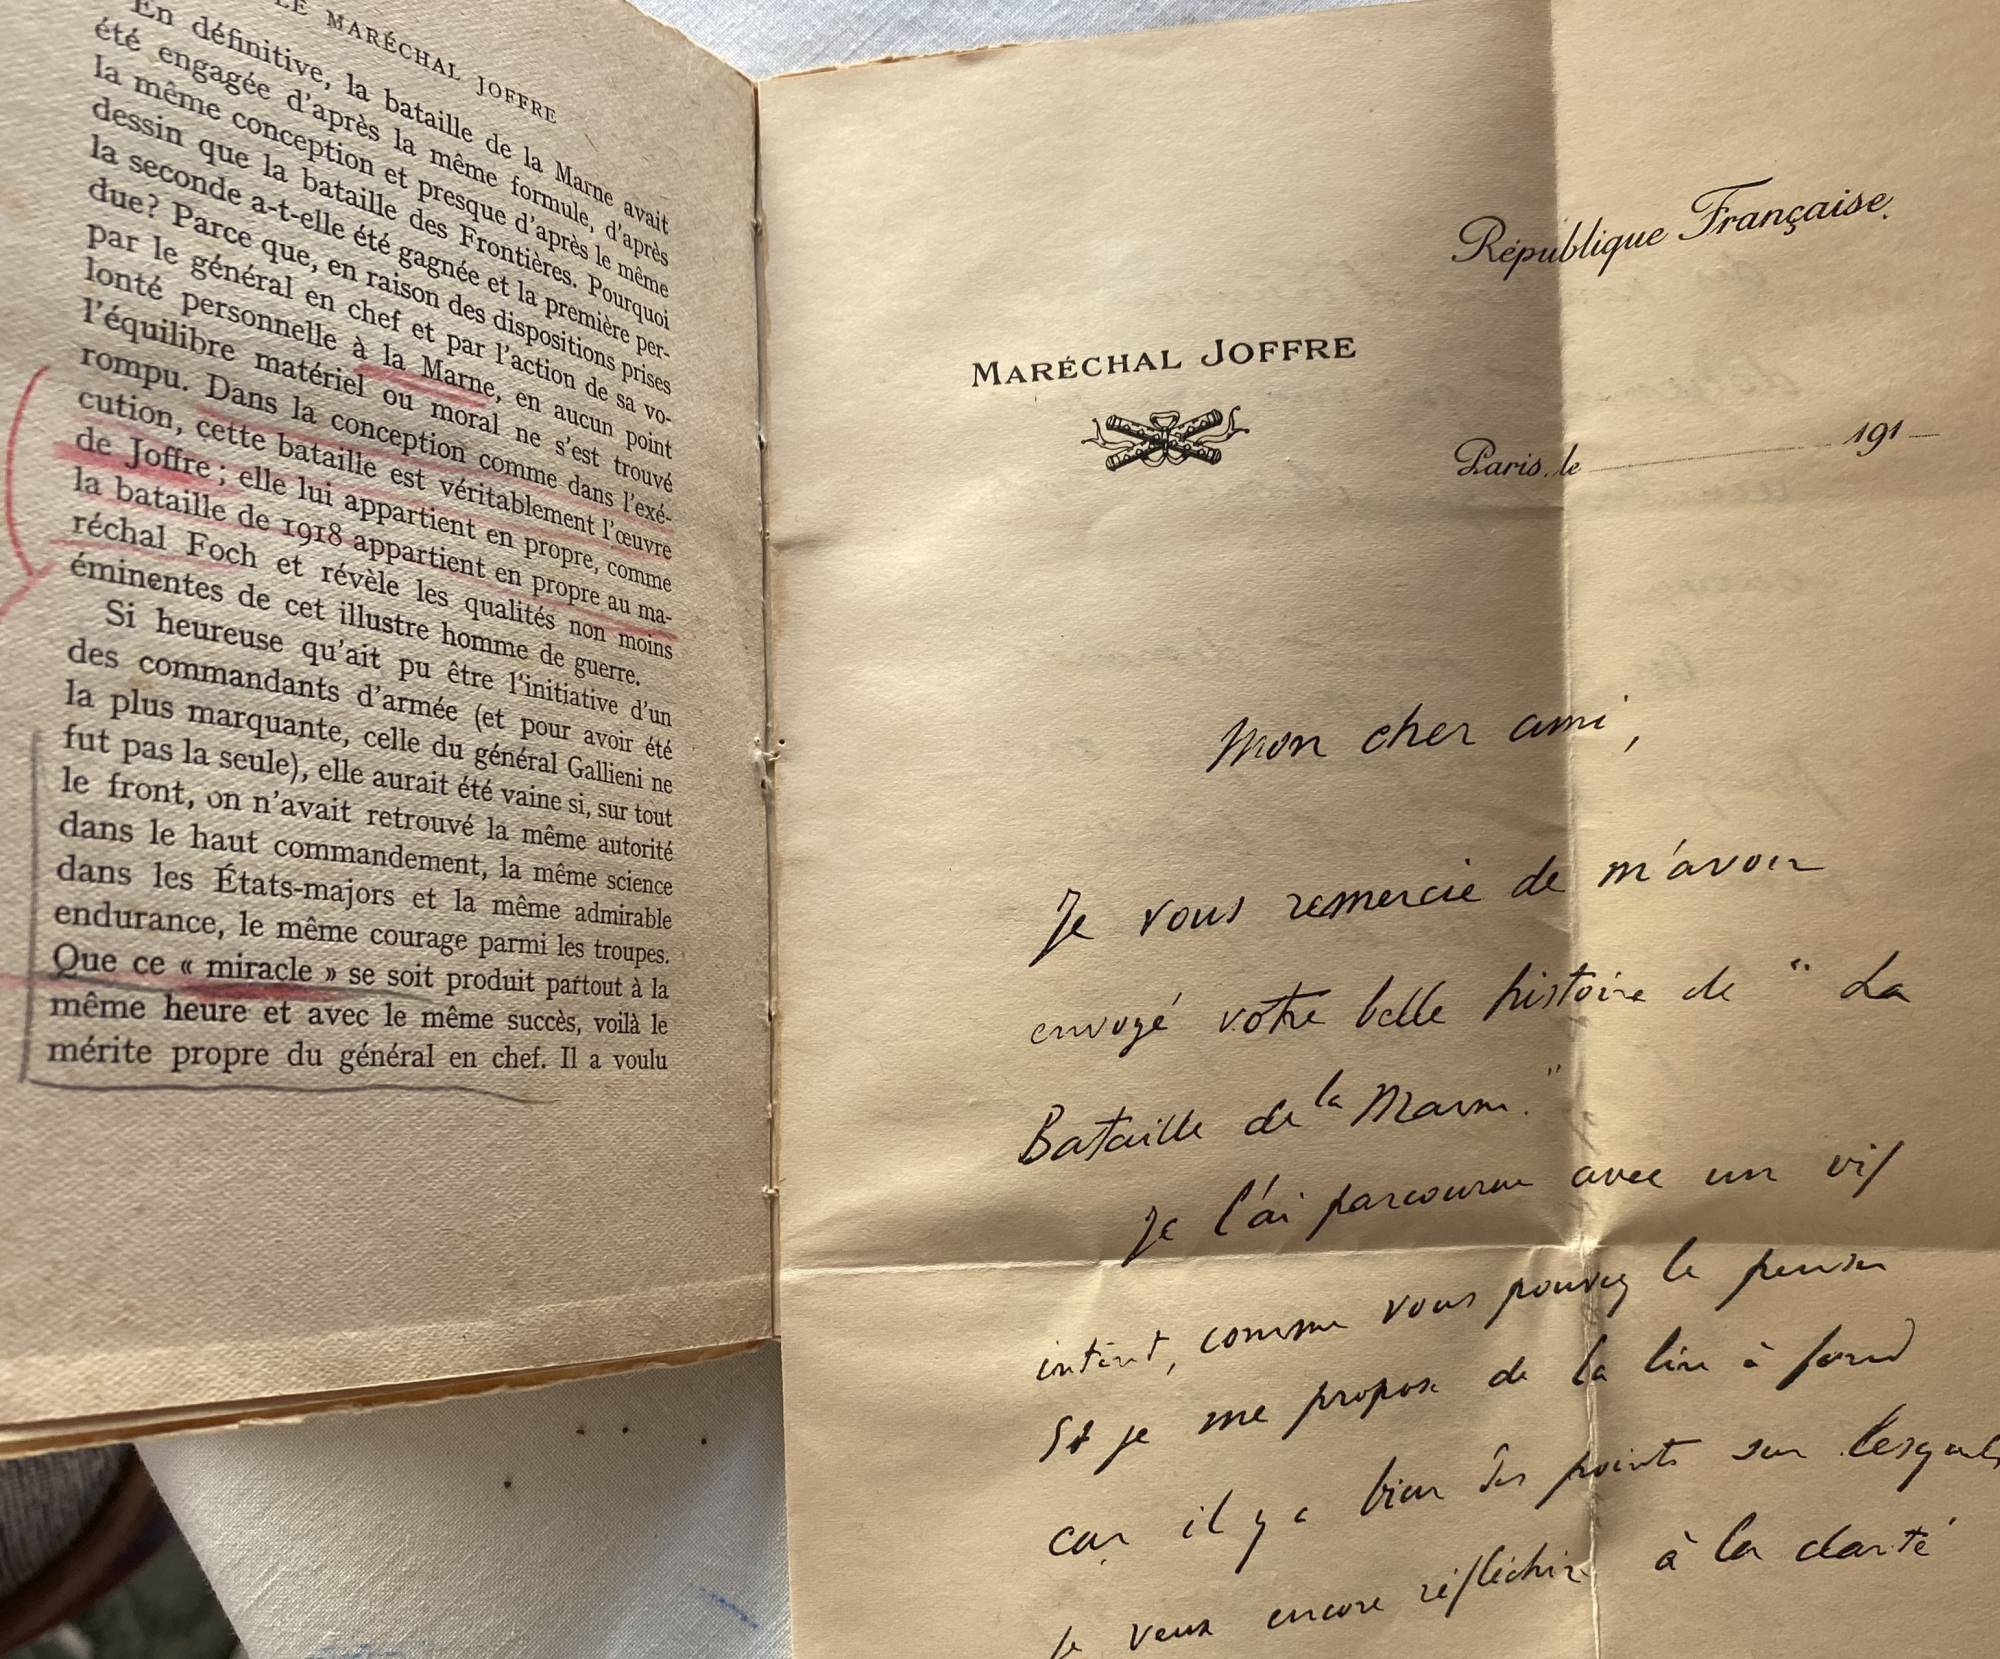 LE MARÉCHAL JOFFRE
En définitive, la bataille de la Marne avait
été engagée d'après la même formule, d'après
la même conception et presque d'après le même
dessin que la bataille des Frontières. Pourquoi
la seconde a-t-elle été gagnée et la première per-
due? Parce que, en raison des dispositions prises
par le général en chef et par l'action de sa vo-
lonté personnelle à la Marne, en aucun point
l'équilibre matériel ou moral ne s'est trouvé
rompu. Dans la conception comme dans l'exé-
cution, cette bataille est véritablement l'œuvre
de Joffre ; elle lui appartient en propre, comme
la bataille de 1918 appartient en propre au ma-
réchal Foch et révèle les qualités non moins
éminentes de cet illustre homme de guerre.
Si heureuse qu'ait pu être l'initiative d'un
des commandants d'armée (et pour avoir été
la plus marquante, celle du général Gallieni ne
fut pas la seule), elle aurait été vaine si, sur tout
le front, on n'avait retrouvé la même autorité
dans le haut commandement, la même science
dans les États-majors et la même admirable
endurance, le même courage parmi les troupes.
Que ce « miracle » se soit produit partout à la
même heure et avec le même succès, voilà le
mérite propre du général en chef. Il a voulu
République Française.
MARÉCHAL JOFFRE
Paris, le 191
Mon cher ami,
Je vous remercie de m'avoir
envoyé votre belle histoire de " La
Bataille de la Marne."
Je l'ai parcourue avec un vif
intérêt, comme vous pouvez le penser
Et je me propose de la lire à fond
car il y a bien des points sur lesquels
je veux encore réfléchir à la clarté